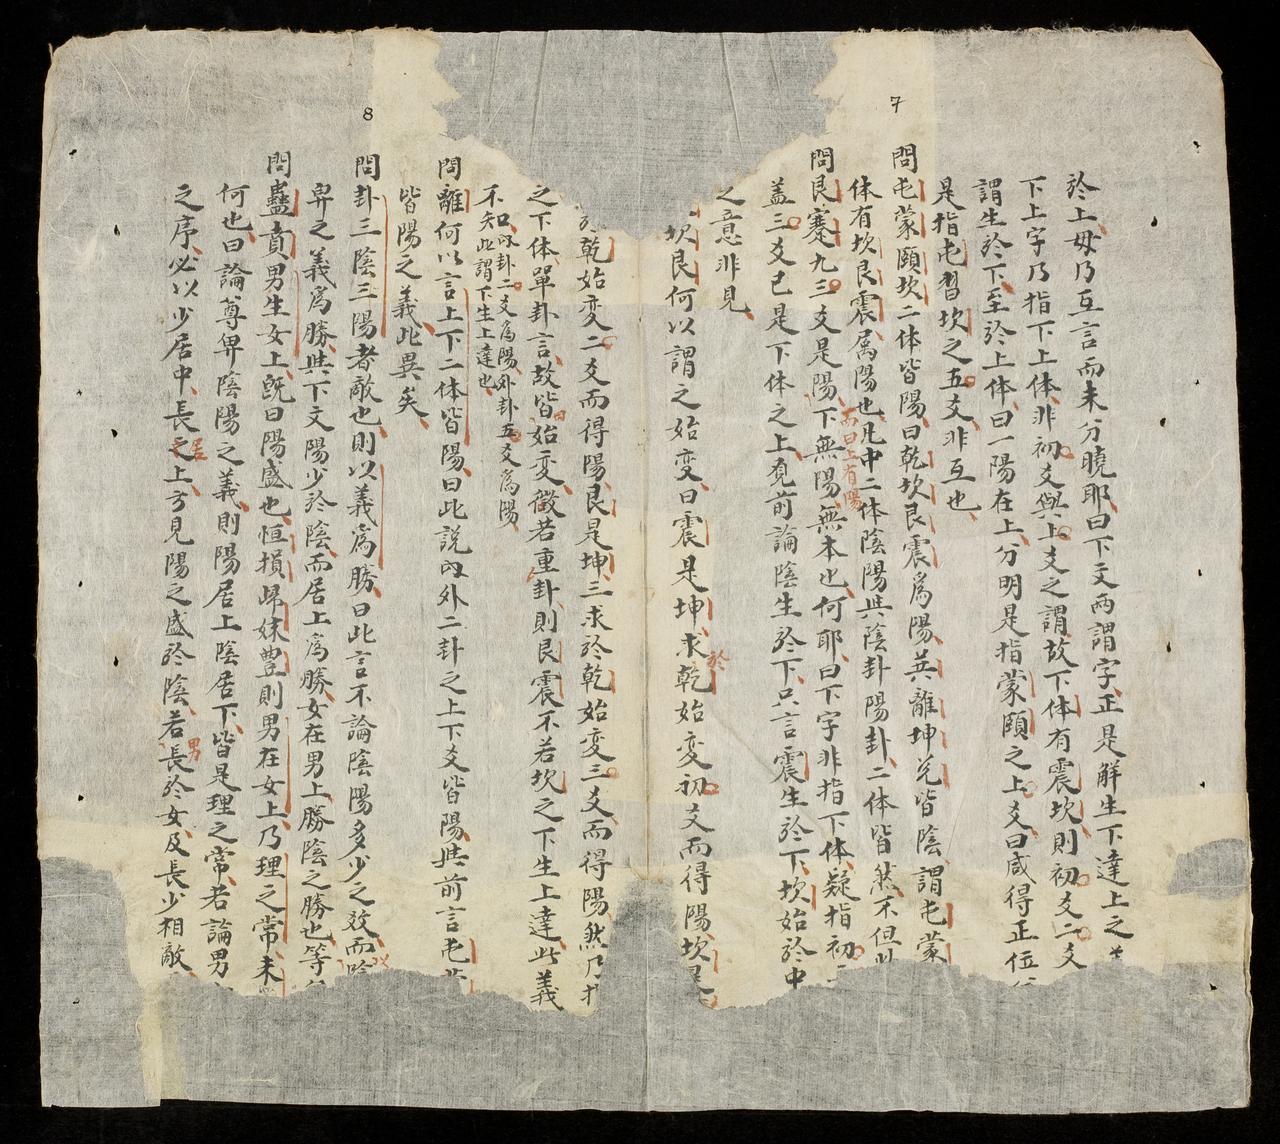 7
於上毋乃互言而未分曉耶曰下文兩謂字正是解生下達上之
下上字乃指下上体非初爻與上爻之謂故下体有震坎則初爻二爻
謂生於下至於上体曰一陽在上分明是指蒙頤之上爻曰咸得正位
是指屯習坎之五爻非互也
問屯蒙頤坎二体皆陽曰乾坎艮震爲陽巽離坤兌皆陰謂屯蒙
体有坎艮震属陽也凡中二体陰陽與陰卦陽卦二体皆然不但
而曰上有陽
問艮蹇九三爻是陽下無陽無本也何耶曰下字非指下体疑指初
盖三爻已是下体之上覓前論陰生於下只言震生於下坎始於中
之意非見
坎艮何以謂之始变曰震是坤求乾始变初爻而得陽坎
於
8
於乾始变二爻而得陽艮是坤三求於乾始变三爻而得陽然乃
之下体單卦言故皆曰始变徵若重卦則艮震不若坎之下生上達此義
只内卦二爻爲陽外卦五爻爲陽
不矣此謂下生上達也
問離何以言上下二体皆陽曰此說内外二卦之上下爻皆陽與前言屯
皆陽之義此異矣
問卦三陰三陽者敵也則以義爲勝曰此言不論陰陽多少之效而陰
以
卑之義爲勝與下文陽少於陰而居上爲勝女在男上勝陰之勝也等
問蠱賁男生女上旣曰陽盛也恒損歸妹豊則男在女上乃理之常未
何也曰論尊卑陰陽之義則陽居上陰居下皆是理之常若論男
之序必以少居中長之上方見陽之盛於陰若長於女及長少相敵
居
男